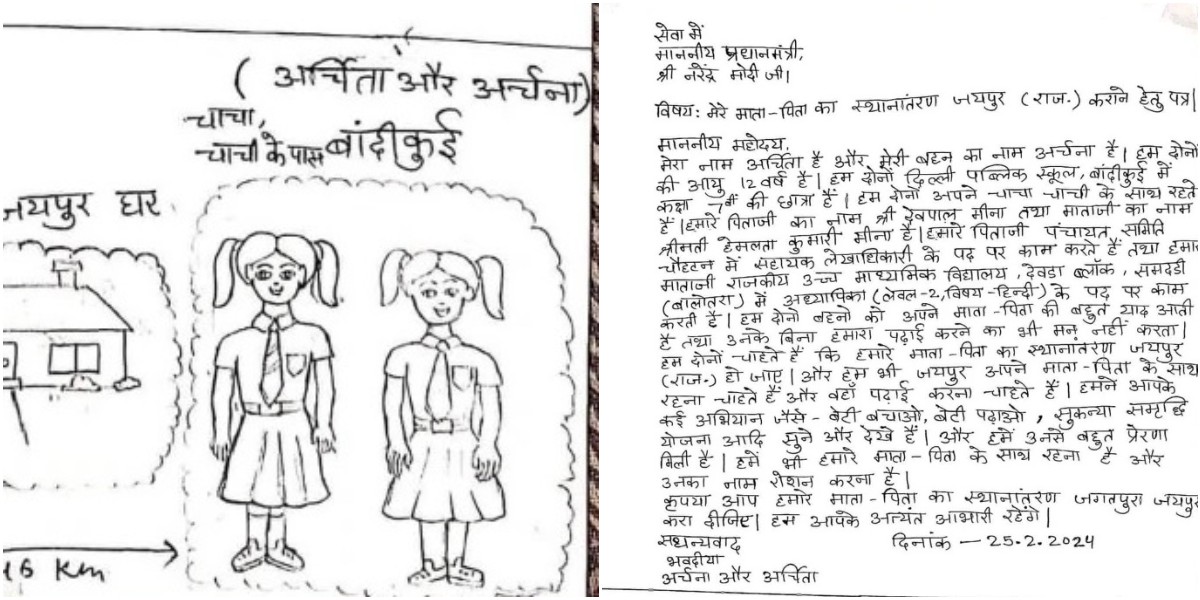 ( अर्चिता और अर्चना)
चाचा,
चाची के पास बांदीकुई
जयपुर घर
46 Km
सेवा में
माननीय प्रधानमंत्री,
श्री नरेंद्र मोदी जी।
विषय: मेरे माता-पिता का स्थानांतरण जयपुर (राज.) कराने हेतु पत्र।
माननीय महोदय,
मेरा नाम अर्चिता है और मेरी बहन का नाम अर्चना है। हम दोनों
की आयु 12 वर्ष है। हम दोनों दिल्ली पब्लिक स्कूल, बांदीकुई में
कक्षा 7वीं की छात्रा हैं। हम दोनों अपने चाचा चाची के साथ रहते
हैं।हमारे पिताजी का नाम श्री देवपाल मीना तथा माताजी का नाम
श्रीमती हेमलता कुमारी मीना है।हमारे पिताजी पंचायत समिति
चौहटन में सहायक लेखाधिकारी के पद पर काम करते हैं तथा हमारी
माताजी राजकीय उच्च माध्यमिक विद्यालय, देवड़ा ब्लॉक, समदड़ी
(बालोतरा) में अध्यापिका (लेवल-2,विषय-हिन्दी) के पद पर काम
करती हैं। हम दोनों बहनों को अपने माता-पिता की बहुत याद आती
है तथा उनके बिना हमारा पढ़ाई करने का भी मन नहीं करता।
हम दोनों चाहते हैं कि हमारे माता-पिता का स्थानांतरण जयपुर
(राज.) हो जाए। और हम भी जयपुर अपने माता-पिता के साथ
रहना चाहते हैं और वहाँ पढ़ाई करना चाहते हैं। हमने आपके
कई अभियान जैसे - बेटी बचाओ, बेटी पढ़ाओ, सुकन्या समृद्धि
योजना आदि सुने और देखे हैं। और हमें उनसे बहुत प्रेरणा
मिली है। हमें भी हमारे माता-पिता के साथ रहना है और
उनका नाम रोशन करना है।
कृपया आप हमारे माता-पिता का स्थानांतरण जगतपुरा जयपुर
करा दीजिए। हम आपके अत्यंत आभारी रहेंगे।
सधन्यवाद दिनांक - 25.2.2024
भवदीया
अर्चना और अर्चिता